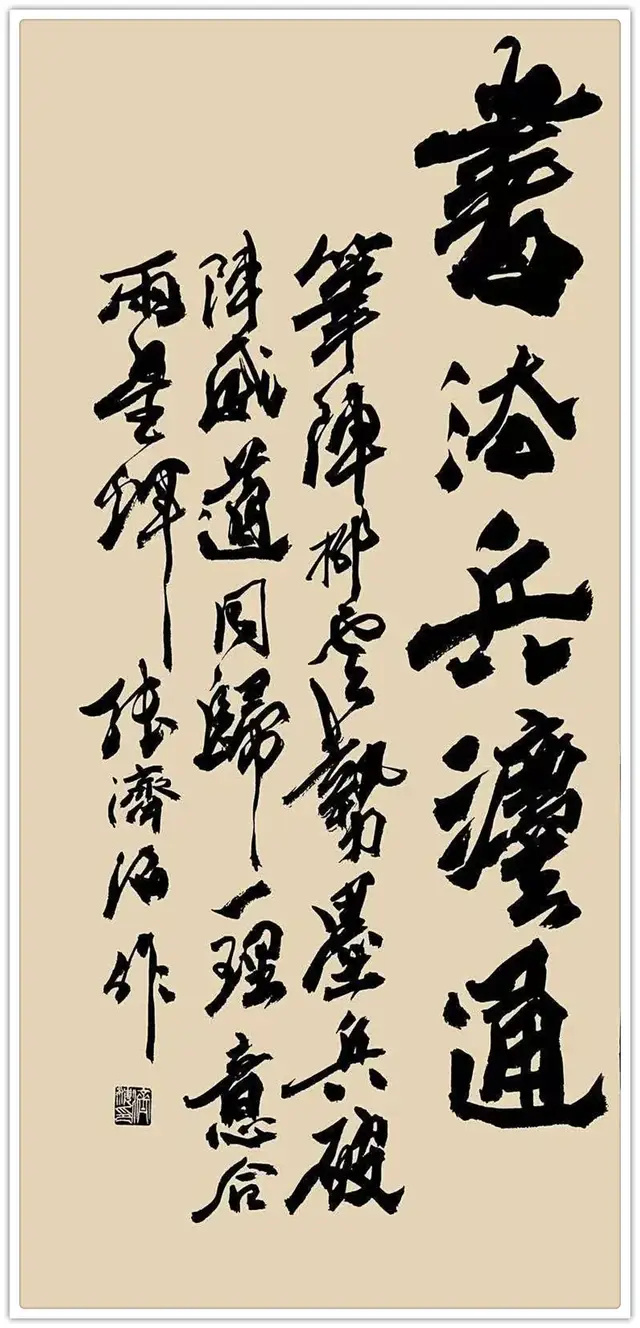 書法兵灋通
筆陣排雲勢墨兵破
陣威道同歸一理意合
兩星煇 張濟海作